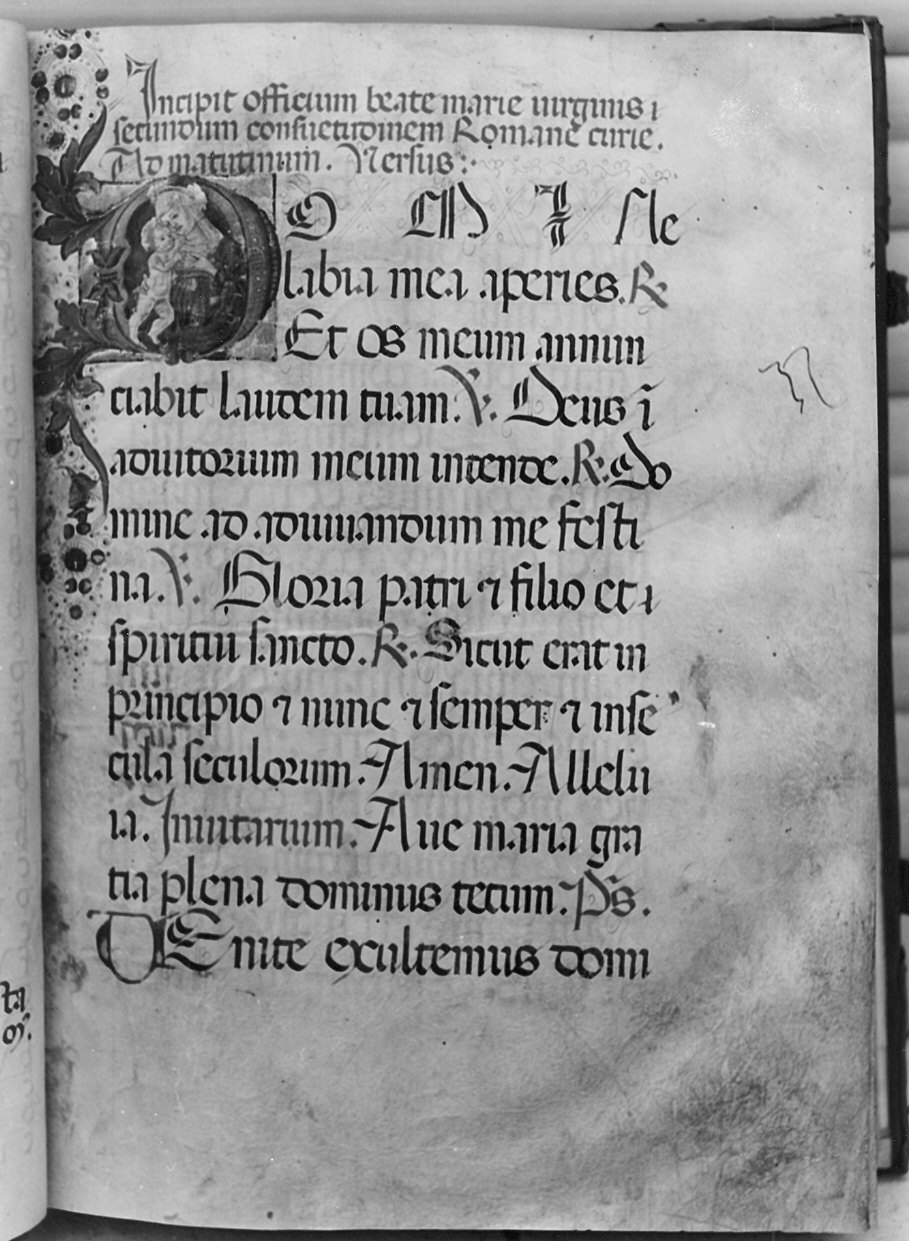 Incipit officium beate marie uirginis
secundum consuetudinem Romane curie.
Ad matutinum. Versus:
DOMINE
labia mea aperies. R.
Et os meum annun
ciabit laudem tuam. V. Deus i
adiutorium meum intende. R. Do
mine ad adiuuandum me festi
na. V. Gloria patri ⁊ filio et
spiritui sancto. R. Sicut erat in
principio ⁊ nunc ⁊ semper ⁊ in se
cula seculorum. Amen. Allelu
ia. Inuitatorium. Aue maria gra
tia plena dominus tecum. Ps.
VEnite exultemus domi
ta